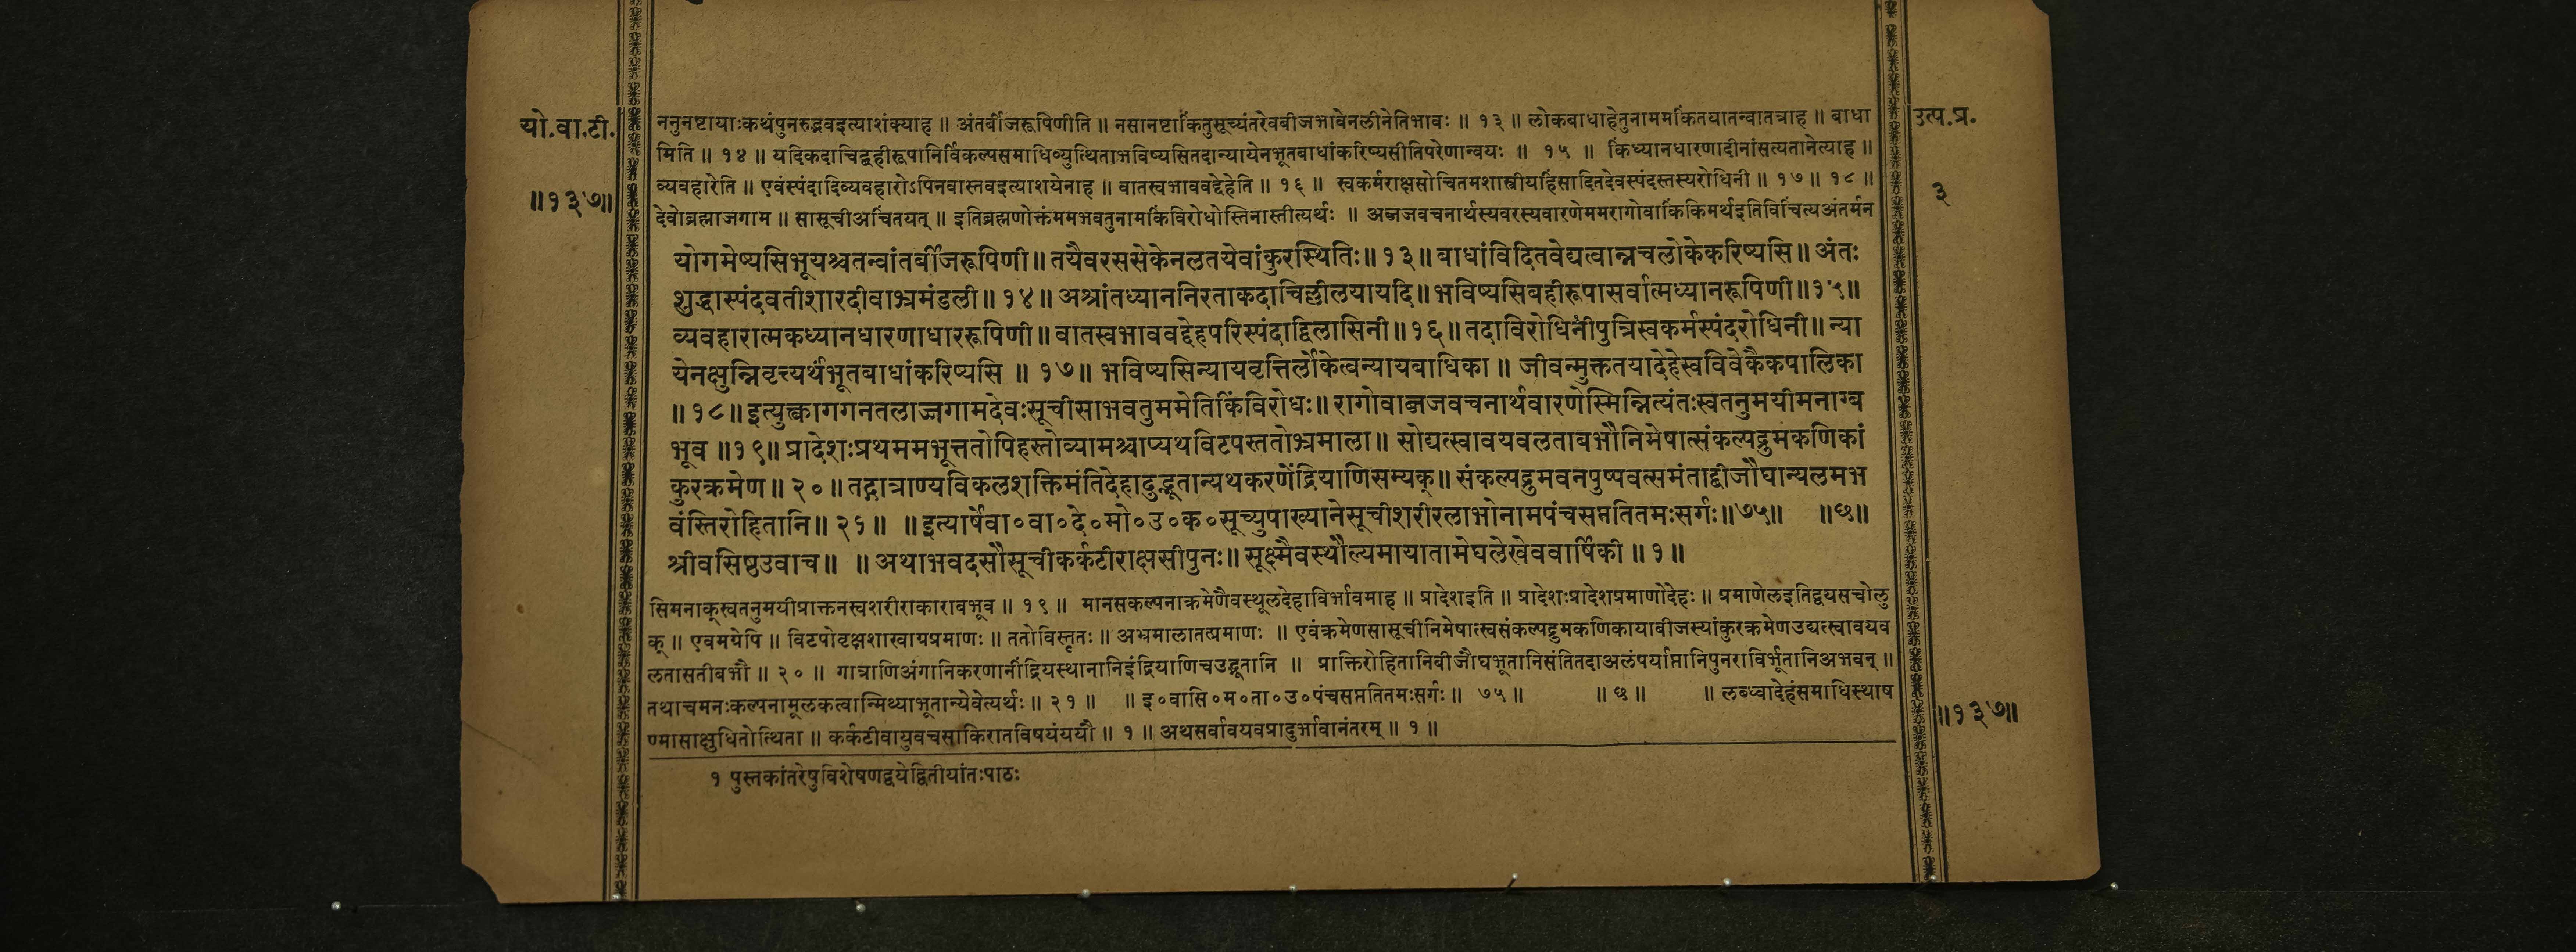 यो.वा.टी.
॥१३७॥
उत्प.प्र.
३
ननुनष्टायाःकथंपुनरुद्भवइत्याशंक्याह ॥ अंतर्बीजरूपिणीति ॥ नसानष्टाकिंतुसूच्यंतरेवबीजभावेनलीनेतिभावः ॥ १३ ॥ लोकबाधाहेतुनाममकिंतयातन्वातत्राह ॥ बाधा
मिति ॥ १४ ॥ यदिकदाचिद्बहीरूपानिर्विकल्पसमाधिव्युत्थिताभविष्यसितदान्यायेनभूतबाधांकरिष्यसीतिपरेणान्वयः ॥ १५ ॥ किंध्यानधारणादीनांसत्यतानेत्याह ॥
व्यवहारेति ॥ एवंस्पंदादिव्यवहारोऽपिनवास्तवइत्याशयेनाह ॥ वातस्वभाववद्देहेति ॥ १६ ॥ स्वकर्मराक्षसोचितमशास्त्रीयहिंसादितदेवस्पंदस्तस्यरोधिनी ॥ १७ ॥ १८ ॥
देवोब्रह्माजगाम ॥ सासूचीअचिंतयत् ॥ इतिब्रह्मणोक्तंममभवतुनामकिंविरोधोस्तिनास्तीत्यर्थः ॥ अब्जजवचनार्थस्यवरस्यवारणेममरागोवाकिंकिमर्थइतिविचिंत्यअंतर्मन
योगमेष्यसिभूयश्चतन्वांतर्बीजरूपिणी ॥ तयैवरससेकेनलतयेवांकुरस्थितिः ॥ १३ ॥ बाधांविदितवेद्यत्वान्नचलोकेकरिष्यसि ॥ अंतः
शुद्धास्पंदवतीशारदीवाभ्रमंडली ॥ १४ ॥ अश्रांतध्याननिरताकदाचिल्लीलयायदि ॥ भविष्यसिबहीरूपासर्वात्मध्यानरूपिणी ॥ १५ ॥
व्यवहारात्मकध्यानधारणाधाररूपिणी ॥ वातस्वभाववद्देहपरिस्पंदाद्विलासिनी ॥ १६ ॥ तदाविरोधिनीपुत्रिस्वकर्मस्पंदरोधिनी ॥ न्या
येनक्षुन्निवृत्त्यर्थंभूतबाधांकरिष्यसि ॥ १७ ॥ भविष्यसिन्यायवृत्तिर्लोकेत्वन्यायबाधिका ॥ जीवन्मुक्ततयादेहेस्वविवेकैकपालिका
॥ १८ ॥ इत्युक्त्वागगनतलाज्जगामदेवःसूचीसाभवतुममेतिकिंविरोधः ॥ रागोवाब्जजवचनार्थवारणेस्मिन्नित्यंतःस्वतनुमयीमनाग्ब
भूव ॥ १९ ॥ प्रादेशःप्रथममभूत्ततोपिहस्तोव्यामश्चाप्यथविटपस्ततोभ्रमाला ॥ सोद्यत्स्वावयवलताबभौनिमेषात्संकल्पद्रुमकणिकां
कुरक्रमेण ॥ २० ॥ तद्गात्राण्यविकलशक्तिमंतिदेहादुद्भूतान्यथकरणेंद्रियाणिसम्यक् ॥ संकल्पद्रुमवनपुष्पवत्समंताद्बीजौघान्यलमभ
वंस्तिरोहितानि ॥ २१ ॥ ॥ इत्यार्षेवा०वा०दे०मो०उ०क०सूच्युपाख्यानेसूचीशरीरलाभोनामपंचसप्ततितमःसर्गः ॥ ७५ ॥ ॥ छ ॥
श्रीवसिष्ठउवाच ॥ ॥ अथाभवदसौसूचीकर्कटीराक्षसीपुनः ॥ सूक्ष्मैवस्थौल्यमायातामेघलेखेववार्षिकी ॥ १ ॥
सिमनाक्स्वतनुमयीप्राक्तनस्वशरीराकाराबभूव ॥ १९ ॥ मानसकल्पनाक्रमेणैवस्थूलदेहाविर्भावमाह ॥ प्रादेशइति ॥ प्रादेशःप्रादेशप्रमाणोदेहः ॥ प्रमाणेलइतिद्वयसचोलु
क् ॥ एवमग्रेपि ॥ विटपोवृक्षशाखाग्रप्रमाणः ॥ ततोविस्तृतः ॥ अभ्रमालातत्प्रमाणः ॥ एवंक्रमेणसासूचीनिमेषात्स्वसंकल्पद्रुमकणिकायाबीजस्यांकुरक्रमेणउद्यत्स्वावयव
लतासतीबभौ ॥ २० ॥ गात्राणिअंगानिकरणानींद्रियस्थानानिइंद्रियाणिचउद्भूतानि ॥ प्राक्तिरोहितानिबीजौघभूतानिसंतितदाअलंपर्याप्तानिपुनराविर्भूतानिअभवन् ॥
तथाचमनःकल्पनामूलकत्वान्मिथ्याभूतान्येवेत्यर्थः ॥ २१ ॥ ॥ इ०वासि०म०ता०उ०पंचसप्ततितमःसर्गः ॥ ७५ ॥ ॥ छ ॥ ॥ लब्ध्वादेहंसमाधिस्थाष
ण्मासाक्षुधितोत्थिता ॥ कर्कटीवायुवचसाकिरातविषयंययौ ॥ १ ॥ अथसर्वावयवप्रादुर्भावानंतरम् ॥ १ ॥
॥१३७॥
१ पुस्तकांतरेषुविशेषणद्वयेद्वितीयांतःपाठः